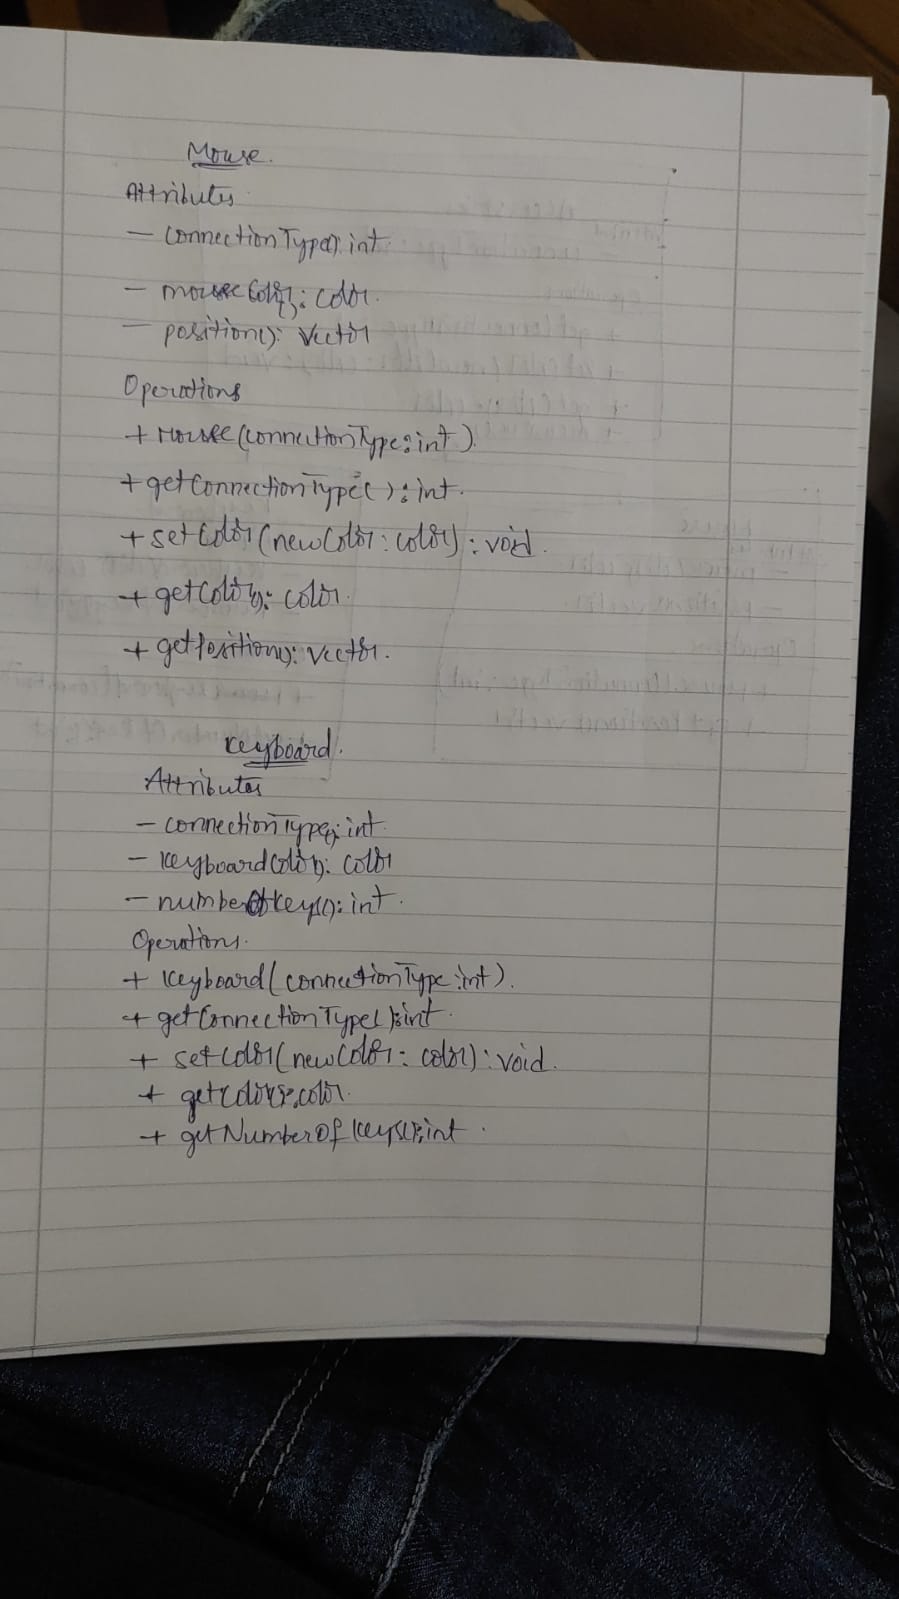 Mouse.
Attributes
- connectionType(): int.
- mouseColor(): color.
- position(): Vector
Operations
+ Mouse(connectionType: int).
+ getConnectionType(): int.
+ setColor(newColor: color): void.
+ getColor(): color.
+ getPosition(): vector.
keyboard.
Attributes
- connectionType(): int.
- keyboardColor(): color
- numberOfkeys(): int.
Operations.
+ keyboard(connectionType: int).
+ getConnectionType(): int.
+ setColor(newColor: color): void.
+ getColor(): color.
+ getNumberOfkeys(): int.